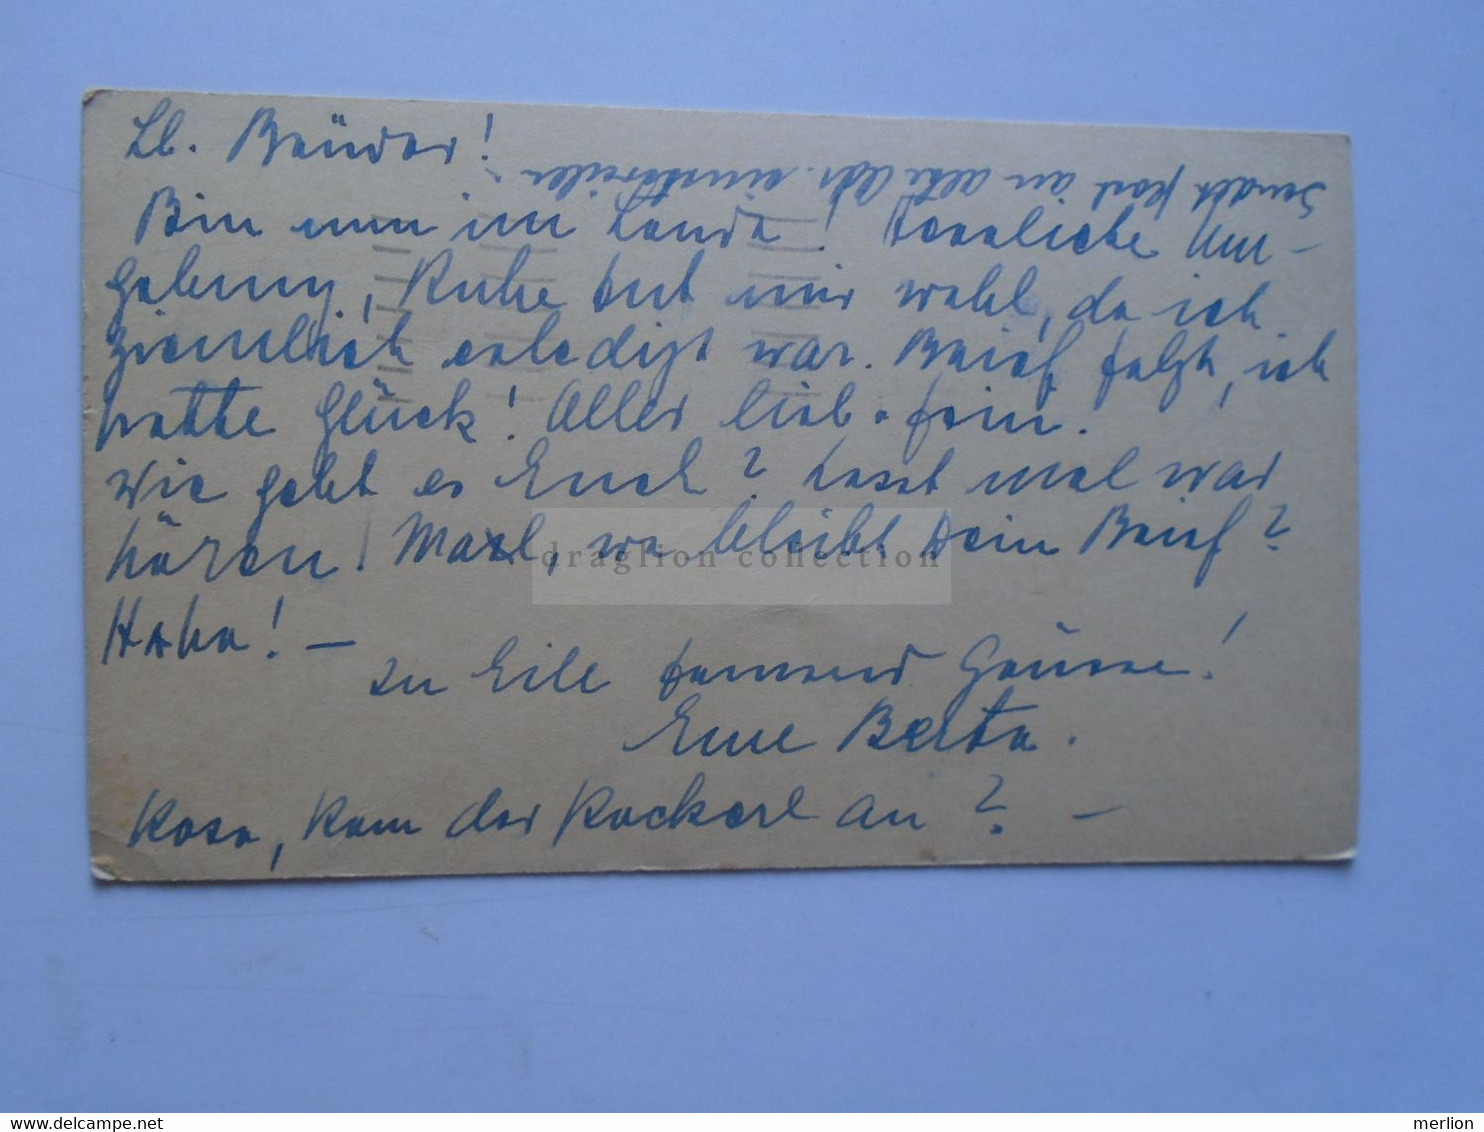 Lb. Brüder!
Sendet Post an alte Adr. einstweilen
Bin nun im Lande! Herrliche Um-
gebung, Ruhe tut mir wohl, da ich
ziemlich erledigt war. Brief folgt, ich
hatte Glück! Alles lieb + fein!
Wie geht es Euch? Lasst mal was
hören! Maxl, wo bleibt Dein Brief?
Haha! –
In Eile tausend Grüsse!
Eure Berta.
Rosa, kam der Packerl an? –
draglion collection
merlion